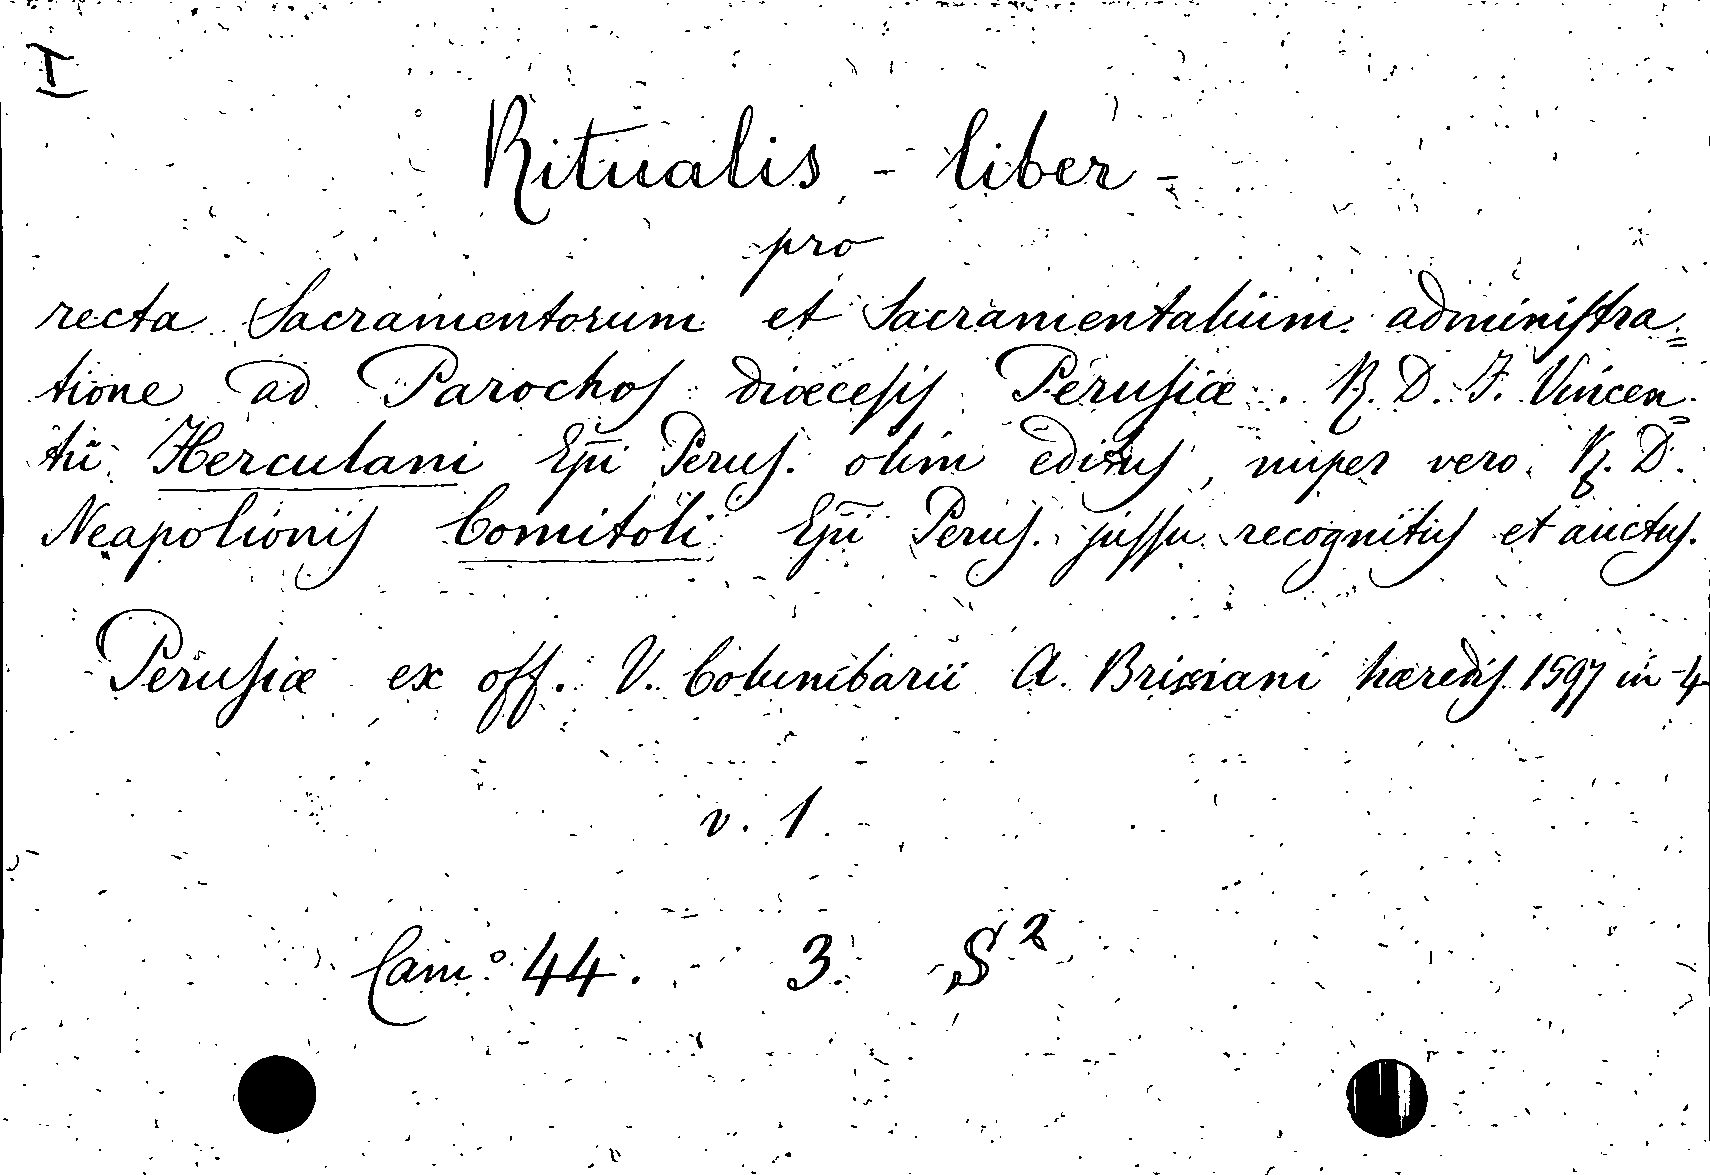 I
Ritualis - liber -
pro
recta Sacramentorum et Sacramentalium administra=
tione ad Parochos diœcesis Perusiæ. R. D. F. Vincen=
tii Herculani Epi Perus. olim editus, nuper vero R. D.
Neapolionis Comitoli Epi Perus. jussu recognitus et auctus.
Perusiæ ex off. V. Columbarii A. Brixiani hæredis 1597 in-4
v. 1
Cam.º 44. 3. S²